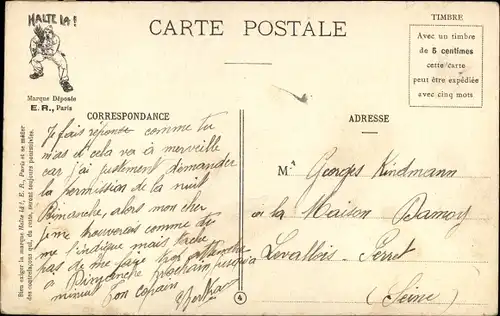 HALTE LA!
Marque Déposée
E. R., Paris
CARTE POSTALE
TIMBRE
Avec un timbre
de 5 centimes
cette carte
peut être expédiée
avec cinq mots
Bien exiger la marque Halte là!, E. R., Paris et se méfier
des contrefaçons qui, du reste, seront toujours poursuivies.
CORRESPONDANCE
J fais réponse comme tu
m'as et cela va à merveille
car j'ai justement demander
la permission de la nuit
Dimanche, alors mon cher
je me trouverais comme tu
me l'indique mais tache
pas de me faire trop attendre
a Dimanche prochain jusqu'a
minuit Ton copain
ADRESSE
M. A Georges Kindmann
à la Maison Damoy
Levallois-Perret
(Seine)
4